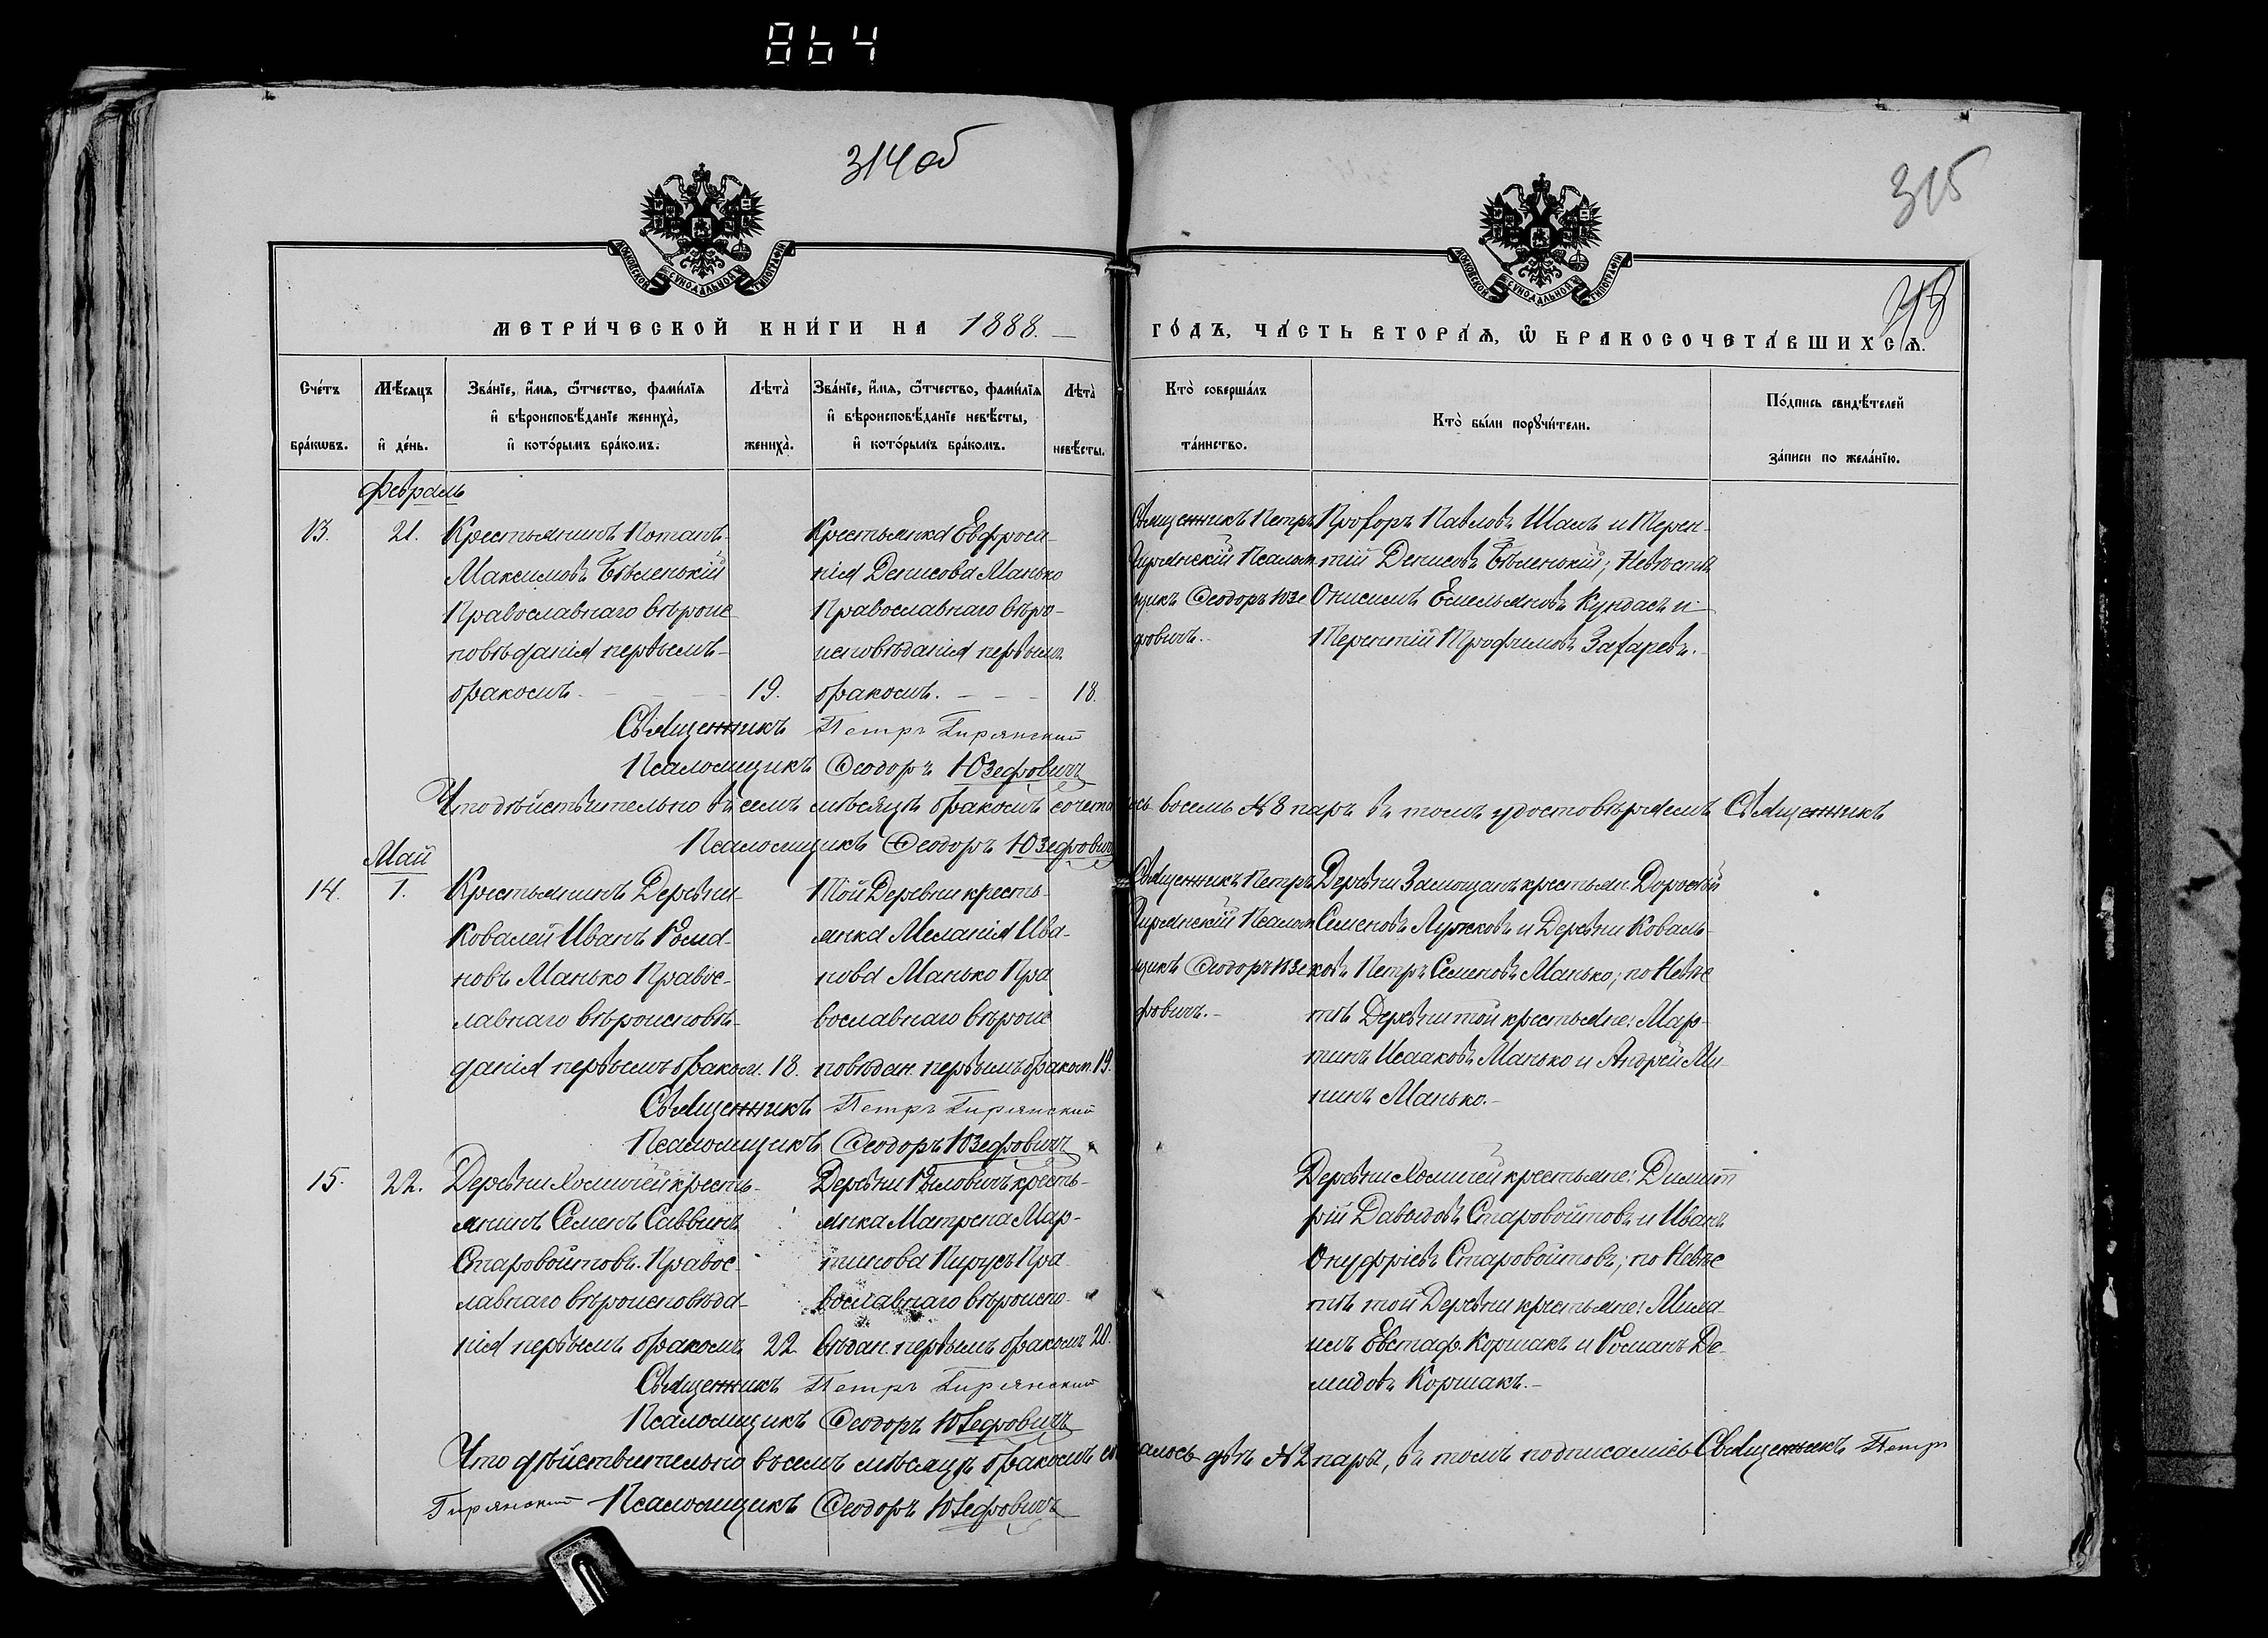 864
314 об
315
48
МОСКОВСКОЙ СУНОДАЛЬНОЙ ТИПОГРАФІИ
МОСКОВСКОЙ СУНОДАЛЬНОЙ ТИПОГРАФІИ
МЕТРИ́ЧЕСКОЙ КНИ́ГИ НА 1888. ГО́ДЪ, ЧА́СТЬ ВТОРА́Ѧ, Ѡ҆ БРАКОСОЧЕТА́ВШИХСѦ.
Сче́тъ
бра́кѡвъ.
Мѣ́сѧцъ
и҆ де́нь.
Зва́нїе, и҆́мѧ, ѻ҆́тчество, фами́лїѧ
и҆ вѣроисповѣ́данїе жениха̀,
и҆ кото́рымъ бра́комъ.
Лѣта̀
жениха̀.
Зва́нїе, и҆́мѧ, ѻ҆́тчество, фами́лїѧ
и҆ вѣроисповѣ́данїе невѣ́сты,
и҆ кото́рымъ бра́комъ.
Лѣта̀
невѣ́сты.
Кто̀ соверша́лъ
та́инство.
Кто̀ бы́ли порꙋчи́тели.
По́дпись свидѣ́телей
за́писи по жела́нїю.
Февраль
13.
21.
Крестьянинъ Потапъ
Максимовъ Бѣленькій
Православнаго вѣроис
повѣданія первымъ
бракомъ.
19.
Крестьянка Евфроси-
нія Денисова Манько
Православнаго вѣро-
исповѣданія первымъ
бракомъ.
18.
Священникъ Петръ
Гирянскій Псалом
щикъ Ѳеодоръ Юзе
фовичъ.
Прохоръ Павловъ Шамъ и Терен-
тій Денисовъ Бѣленькій; Невѣстѣ
Онисимъ Емельяновъ Кундасъ и
Терентій Трофимовъ Захаревъ.
Священникъ Петръ Гирянский
Псаломщикъ Ѳеодоръ Юзефовичъ
Что дѣйствительно въ семъ мѣсяцѣ бракомъ сочеталось восемь № 8 паръ въ томъ удостовѣряемъ Священникъ
Псаломщикъ Ѳеодоръ Юзефовичъ
Май
14.
1.
Крестьянинъ Деревни
Ковалей Иванъ Рома-
новъ Манько Правос-
лавнаго вѣроисповѣ-
данія первымъ браком. 18.
Той Деревни кресть-
янка Меланія Ива-
нова Манько Пра
вославнаго вѣроис
повѣдан. первымъ браком. 19.
Священникъ Петръ
Гирянскій Псалом
щикъ Ѳеодоръ Юзе
фовичъ.
Деревни Замощанъ крестьян. Дорофей
Семеновъ Лужковъ и Деревни Коваль-
ковъ Петръ Семеновъ Манько; по Невѣс
тѣ Деревни той крестьяне: Мар-
тинъ Исааковъ Манько и Андрей Ми-
нинъ Манько.
Священникъ Петръ Гирянский
Псаломщикъ Ѳеодоръ Юзефовичъ
15.
22.
Деревни Хоминей кресть-
янинъ Семенъ Саввинъ
Старовойтовъ. Правос-
лавнаго вѣроисповѣда-
нія первымъ бракомъ 22.
Деревни Рымовичъ кресть-
янка Матрена Мар-
тинова Пирусъ Пра
вославнаго вѣроиспо-
вѣдан. первымъ бракомъ 20.
Деревни Хоминей крестьяне: Димит
рій Давыдовъ Старовойтовъ и Иванъ
Онуфріевъ Старовойтовъ; по Невѣс
тѣ той Деревни крестьяне: Миха-
илъ Евстаф. Коршакъ и Романъ Де-
мидовъ Коршакъ.
Священникъ Петръ Гирянский
Псаломщикъ Ѳеодоръ Юзефовичъ
Что дѣйствительно въ семъ мѣсяцѣ бракомъ сочеталось двѣ № 2 пары, въ томъ подписались Священникъ Петръ
Гирянский Псаломщикъ Ѳеодоръ Юзефовичъ